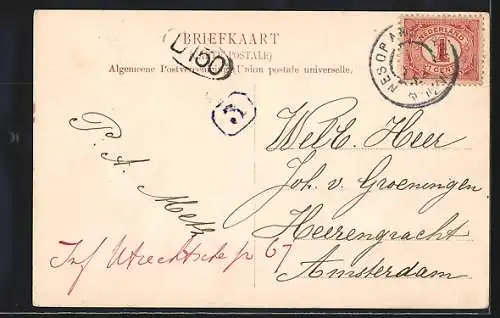 BRIEFKAART
(CARTE POSTALE)
Algemeene Postvereeniging Union postale universelle.
D 150
5
NEDERLAND
1
CENT
NES OP AM
P. A. Metz
Welb. Heer
Joh. v. Groeningen
Heerengracht
Amsterdam
Inf Utrechtsche p 67